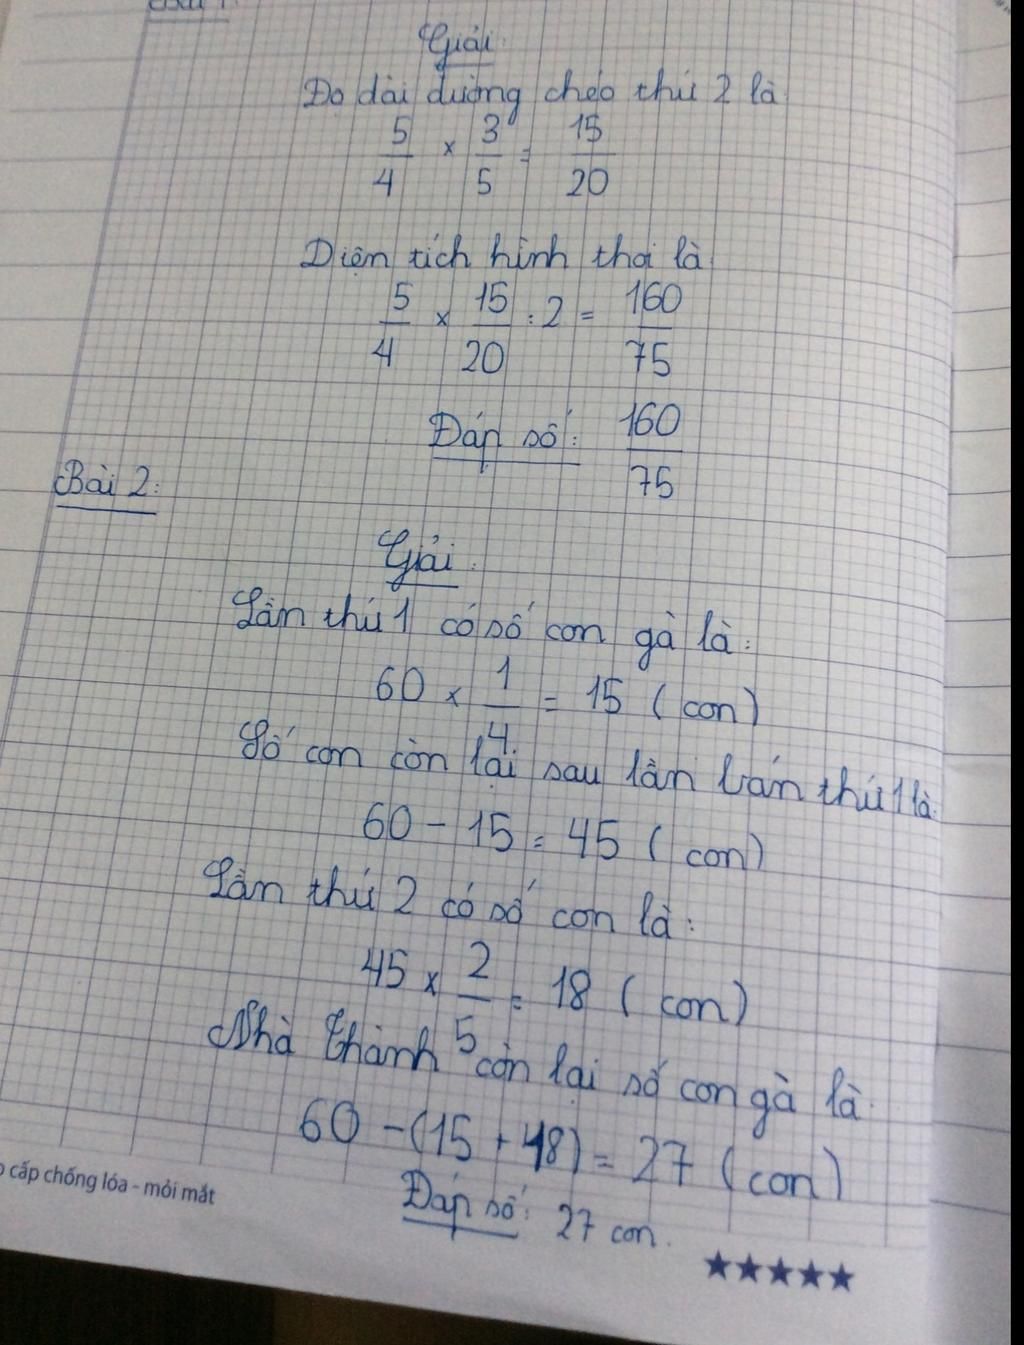 Giải.
Độ dài đường chéo thứ 2 là
5/4 × 3/5 = 15/20
Diện tích hình thoi là
5/4 × 15/20 : 2 = 160/75
Đáp số: 160/75
Bài 2:
Giải.
Lần thứ 1 có số con gà là:
60 × 1/4 = 15 (con)
Số con còn lại sau lần bán thứ 1 là:
60 - 15 = 45 (con)
Lần thứ 2 có số con là:
45 × 2/5 = 18 (con)
Nhà Thành còn lại số con gà là:
60 - (15 + 18) = 27 (con)
Đáp số: 27 con.
cấp chống lóa - mỏi mắt
★★★★★